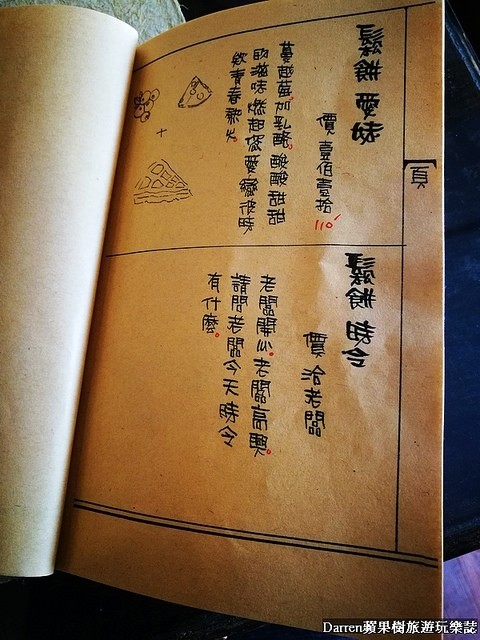 頁
鬆餅 愛妹
價 壹佰壹拾
110
蔓越莓加乳酪。酸酸甜甜
滋味燃起您愛戀彼時
欸青春歌火。
+
鬆餅 時令
價 洽老闆
老闆開心。老闆高興。
請問老闆今天時令
有什麼。
Darren蘋果樹旅遊玩樂誌